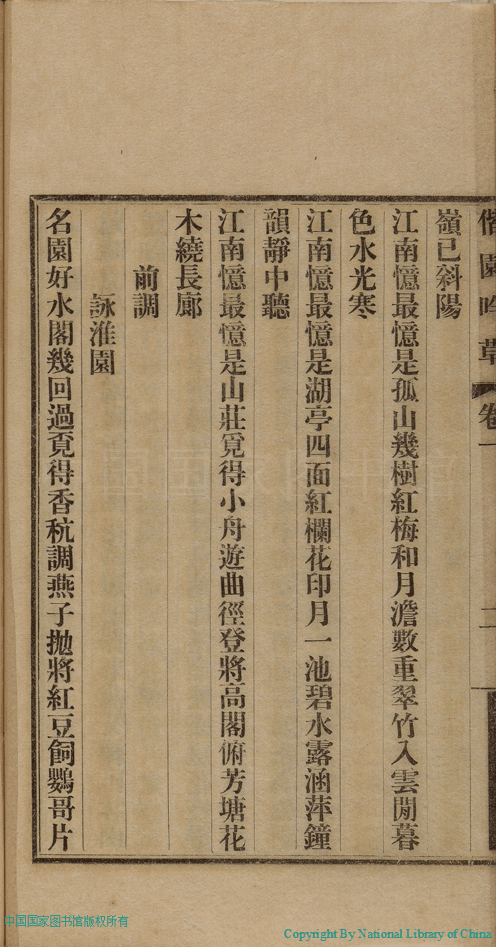 偕園吟草 卷一 二
嶺已斜陽
江南憶最憶是孤山幾樹紅梅和月澹數重翠竹入雲閒暮
色水光寒
江南憶最憶是湖亭四面紅欄花印月一池碧水露涵萍鐘
韻靜中聽
江南憶最憶是山莊覓得小舟遊曲徑登將高閣俯芳塘花
木繞長廊
前調
詠淮園
名園好水閣幾回過覔得香秔調燕子拋將紅豆飼鸚哥片
中国国家图书馆版权所有
Copyright By National Library of China